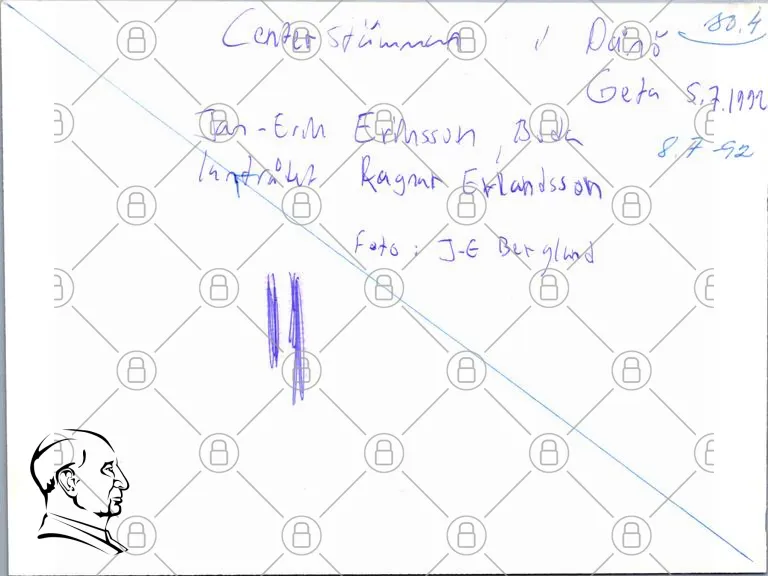 Centerstämman i Danö 80.4
Geta 5.7.1992
Jan-Erik Eriksson,
8.7-92
lantrådet Ragnar Erlandsson
Foto: J-E Berglund